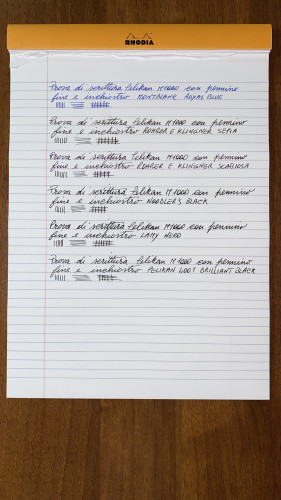 RHODIA
Prova di scrittura Pelikan M1000 con pennino
fine e inchiostro MONTBLANC ROYAL BLUE
Prova di scrittura Pelikan M1000 con pennino
fine e inchiostro ROHRER E KLINGNER SEPIA
Prova di scrittura Pelikan M1000 con pennino
fine e inchiostro ROHRER E KLINGNER SCABIOSA
Prova di scrittura Pelikan M1000 con pennino
fine e inchiostro NOODLER'S BLACK
Prova di scrittura Pelikan M1000 con pennino
fine e inchiostro LAMY NERO
Prova di scrittura Pelikan M1000 con pennino
fine e inchiostro PELIKAN 4001 BRILLIANT BLACK